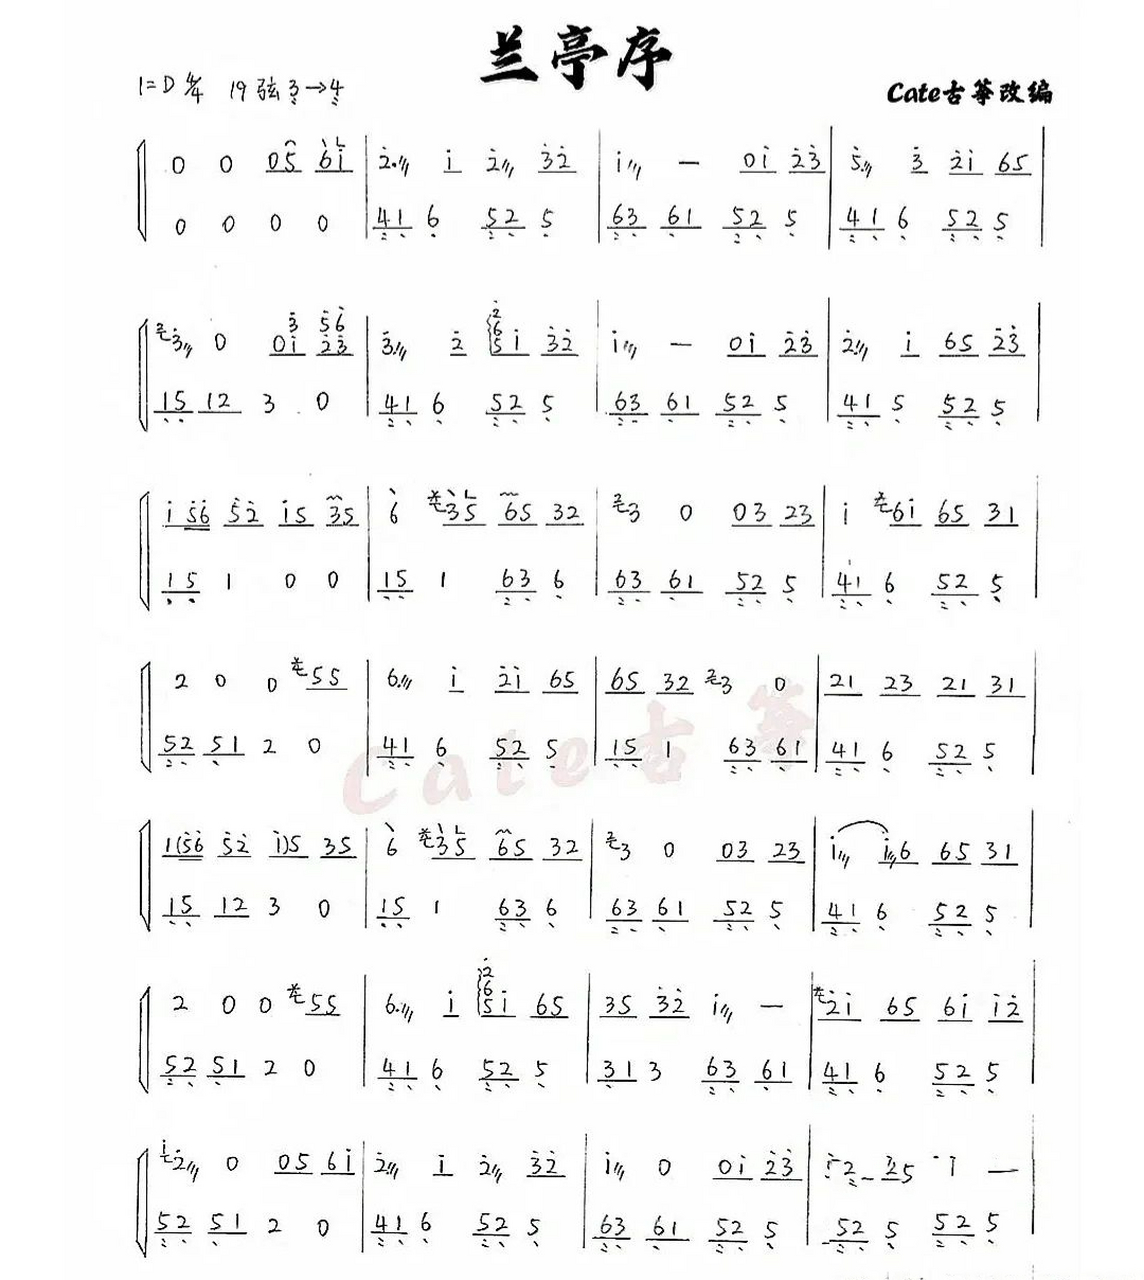 兰亭序
1=D 4/4 19弦 3→4
Cate古筝改编
0 0 05 6i | 2· i 2 32 | i — 0i 23 | 5· 3 2i 65
0 0 0 0 | 41 6 52 5 | 63 61 52 5 | 41 6 52 5
3 3 0 0i 23 | 3· 2 5i 32 | i — 0i 23 | 2· i 65 23
15 12 3 0 | 41 6 52 5 | 63 61 52 5 | 41 5 52 5
i 56 52 i5 35 | 6 35 65 32 | 2 3 0 03 23 | i 6i 65 31
15 1 0 0 | 15 1 63 6 | 63 61 52 5 | 41 6 52 5
2 0 0 55 | 6· i 2i 65 | 65 32 2 3 0 | 21 23 21 31
52 51 2 0 | 41 6 52 5 | 15 1 63 61 | 41 6 52 5
Cate古筝
1(56 52 i)5 35 | 6 35 65 32 | 2 3 0 03 23 | i i6 65 31
15 12 3 0 | 15 1 63 6 | 63 61 52 5 | 41 6 52 5
2 0 0 55 | 6· i 5i 65 | 35 32 i — | 2i 65 6i i2
52 51 2 0 | 41 6 52 5 | 31 3 63 61 | 41 6 52 5
i 2 0 05 6i | 2· i 2 32 | i 0 0i 23 | i —
52 51 2 0 | 41 6 52 5 | 63 61 52 5 | 52 5 52 5